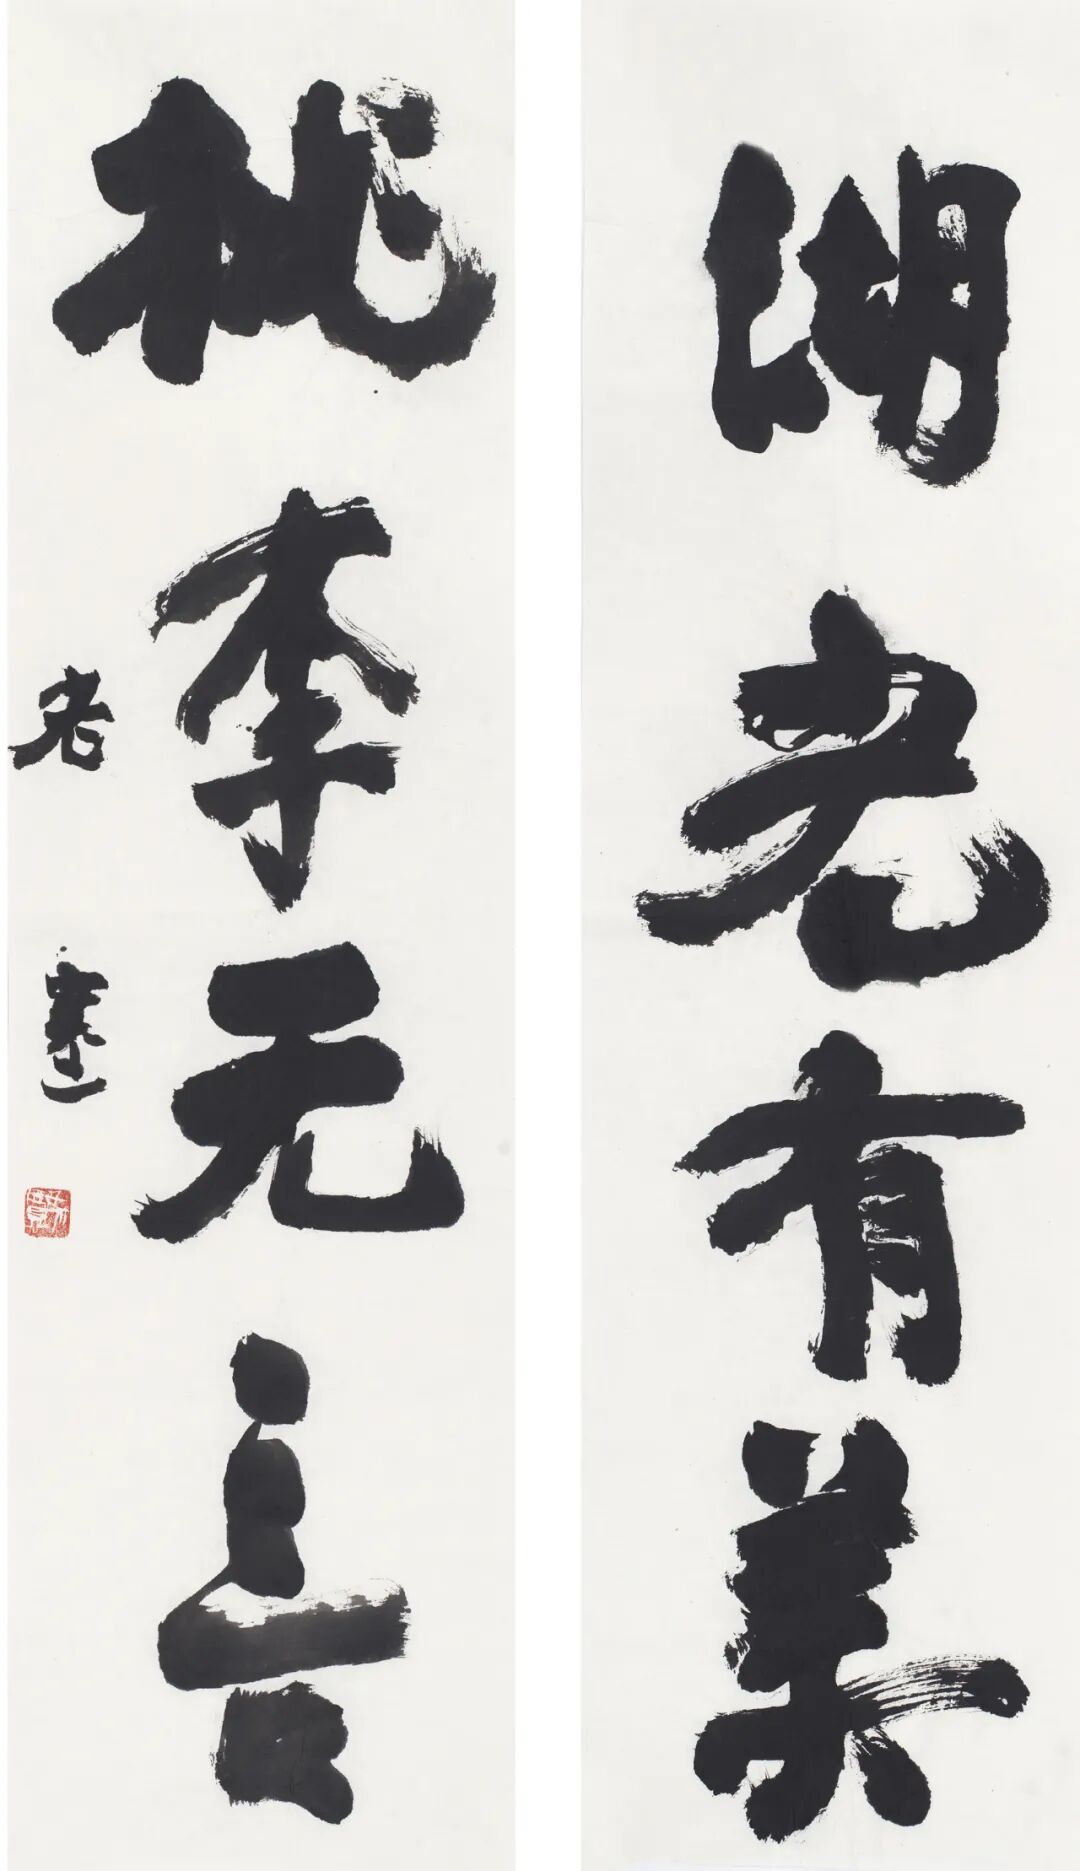 湖老有美
桃李无言
老